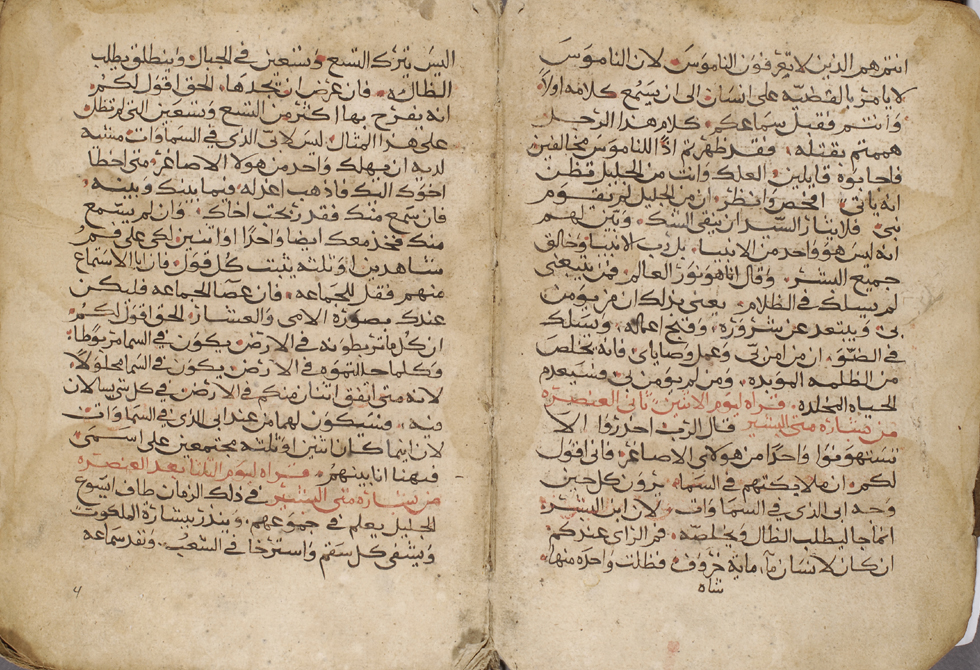 انتم هم الذين لا تعرفون الناموس لان الناموس
لا يامر بالقضيه على انسان الى ان يسمع كلامه اولاً
وانتم فقبل سماعكم كلام هذا الرجل
هممتم بقتله فقد ظهرتم اذًا للناموس مخالفين
فاجابوه قايلين العلك وانت من الجليل تظن
انه ياتي افحص وانظر ان من الجليل لم يقوم
نبي فلايثار السيد ان ينفي الشك ويبين لهم
انه ليس هو واحد من الانبيا بل رب الانبيا وخالق
جميع البشر وقال انا هو نور العالم فمن تبعني
لم يسلك في الظلام يعني بذلك ان من يومن
بي ويبتعد عن شروره وقبح اعماله ويسلك
في الضو ان من امن بي وعمل وصاياي فانه يخلص
من الظلمه الموبده ومن لم يومن بي فسيعدم
الحياه المخلده قراه ليوم الاثنين ثاني العنصره
من بشاره متى البشير قال الرب احدروا الا
تستهونوا واحدًا من هولاي الاصاغر فاني اقول
لكم ان ملايكتهم في السما يرون كل حين
وجه ابي الذي في السماوات لان ابن البشر
انما جا ليطلب الظال ويخلصه فما الراي عندكم
ان كان لانسان ما ماية خروف فظلت واحده منها
شاه
اليس يترك التسع وتسعين في الجبال وينطلق يطلب
الظاله فان عرض ان يجدها الحق اقول لكم
انه يفرح بها اكثر من التسع وتسعين التي لم تظل
على هذا المثال ليس لابي الذي في السماوات مشيه
لديه ان يهلك واحد من هولا الاصاغر متى اخطا
اخوك اليك فاذهب اعذله فيما بينك وبينه
فان سمع منك فقد ربحت اخاك وان لم يسمع
منك فخذ معك ايضا واحدًا او اتنين لكي على فم
شاهدين او تلته يتبت كل قول فان ابا الاسماع
منهم فقل للجماعه فان عصا الجماعه فليكن
عندك بصورة الامي والعشار الحق اقول لكم
ان كل ما تربطونه في الارض يكون في السما مربوطًا
وكلما حللتموه في الارض يكون في السما محلولاً
لانه متى اتفق اتنان منكم في الارض في كل شي يسالان
فيه فسيكون لهما من عند ابي الذي في السماوات
لان اينما كان اتنين او تلته مجتمعين على اسمي
فهنا انا بينهم قراه ليوم التلتا بعد العنصره
من بشاره متى البشير في ذلك الزمان طاف ايسوع
الجليل يعلم في جموعهم وينذر ببشارة الملكوت
ويشفي كل سقم واسترخا في الشعب ونفد سماعه